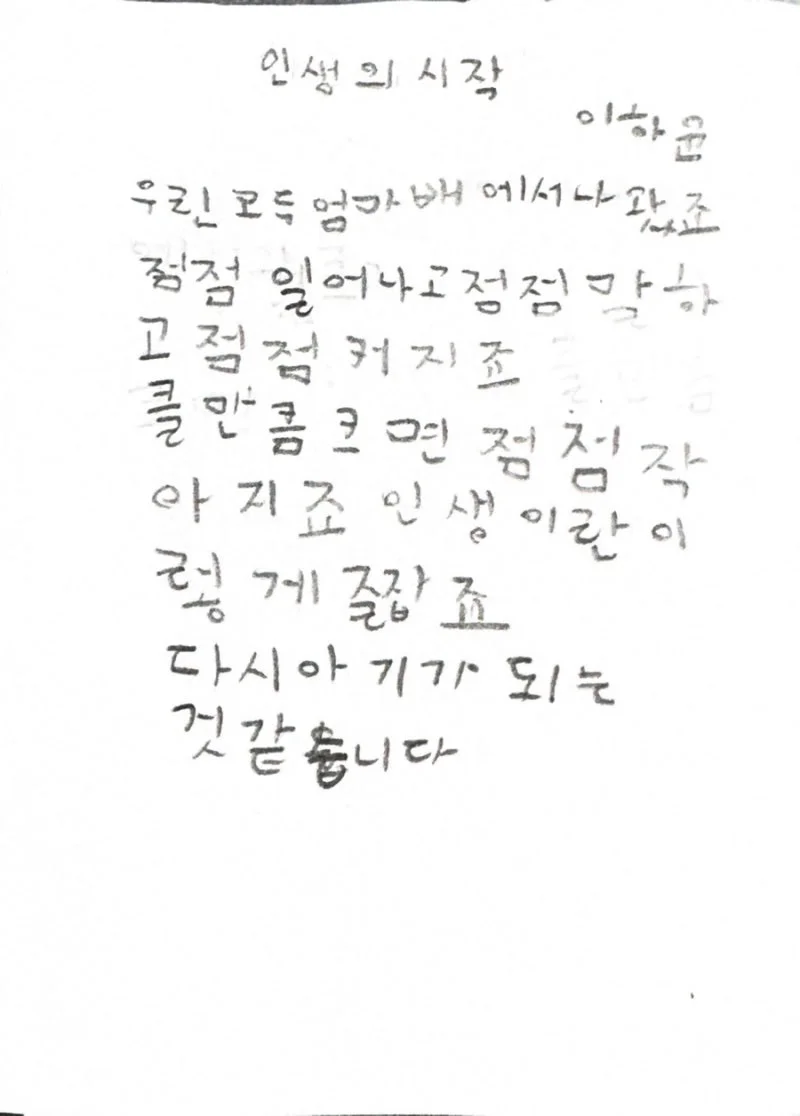 인생의 시작
이하윤
우린 모두 엄마 배에서 나왔죠
점점 일어나고 점점 말하
고 점점 커지죠
클만큼 크면 점점 작
아지죠 인생이란 이
렇게 즐잡죠
다시 아기가 되는
것 같습니다